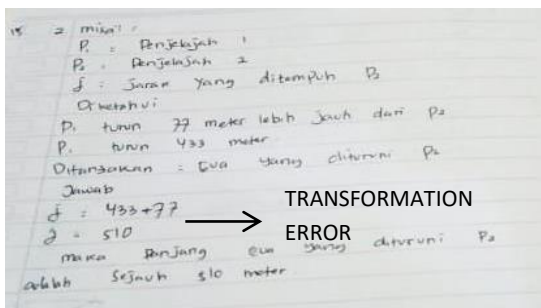 2 misal :
P₁ : Penjelajah 1
P₂ : Penjelajah 2
f : Jarak yang ditempuh P₂
Diketahui
P₁ turun 77 meter lebih jauh dari P₂
P₁ turun 433 meter
Ditanyakan : Gua yang dituruni P₂
Jawab
f : 433+77
f = 510
TRANSFORMATION
ERROR
maka Panjang gua yang dituruni P₂
adalah sejauh 510 meter